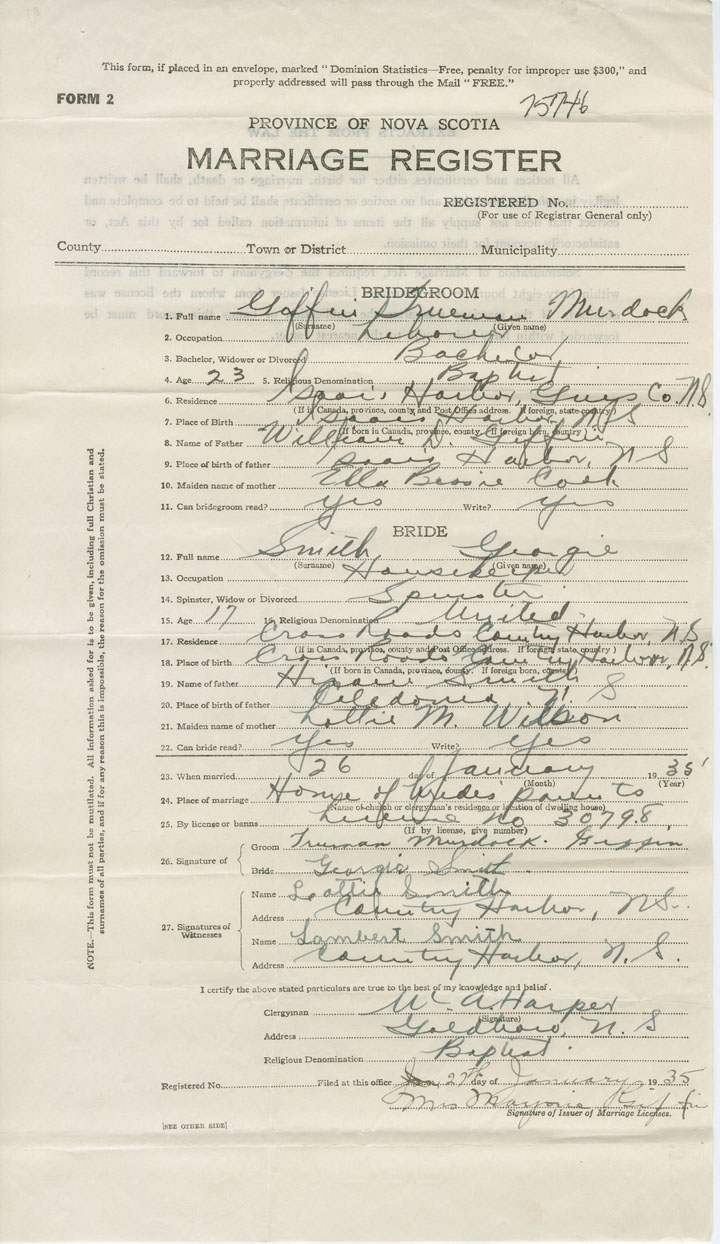 This form, if placed in an envelope, marked "Dominion Statistics—Free, penalty for improper use $300," and
properly addressed will pass through the Mail "FREE."
FORM 2
75746
PROVINCE OF NOVA SCOTIA
MARRIAGE REGISTER
REGISTERED No.
(For use of Registrar General only)
County Town or District Municipality
BRIDEGROOM
1. Full name Giffin Trueman Murdock
(Surname) (Given name)
2. Occupation Laborer
3. Bachelor, Widower or Divorced Bachelor
4. Age 23 5. Religious Denomination Baptist
6. Residence Isaacs Harbor, Guys Co. N.S.
(If in Canada, province, county and Post Office address. If foreign, state country)
7. Place of Birth Isaacs Harbor N S
(If born in Canada, province, county. If foreign born, country)
8. Name of Father William D. Giffin
9. Place of birth of father Isaacs Harbor, N S
10. Maiden name of mother Ella Bessie Cook
11. Can bridegroom read? yes Write? yes
BRIDE
12. Full name Smith Georgie
(Surname) (Given name)
13. Occupation Housekeeper
14. Spinster, Widow or Divorced Spinster
15. Age 17 16. Religious Denomination United
17. Residence Cross Roads Country Harbor N.S.
(If in Canada, province, county and Post Office address. If foreign state country)
18. Place of birth Cross Roads Country Harbor, N.S.
(If born in Canada, province, county. If foreign born, country)
19. Name of father Hiram Smith
20. Place of birth of father Caledonia N S
21. Maiden name of mother Lottie M. Wilson
22. Can bride read? Yes Write? Yes
23. When married 26 day of January 1935
(Month) (Year)
24. Place of marriage Home of brides parents
(Name of church or clergyman's residence or location of dwelling house)
25. By license or banns License No 30798
(If by license, give number)
26. Signature of
Groom Truman Murdock. Giffin
Bride Georgie Smith
27. Signatures of Witnesses
Name Lottie Smith
Address Country Harbor, N.S.
Name Lambert Smith
Address Country Harbor, N. S.
I certify the above stated particulars are true to the best of my knowledge and belief.
Clergyman Wm A Harper
(Signature)
Address Goldboro, N. S
Religious Denomination Baptist
Registered No. Filed at this office 29th day of January 1935
Mrs Mayme Giffin
Signature of Issuer of Marriage Licenses.
[SEE OTHER SIDE]
NOTE.—This form must not be mutilated. All information asked for is to be given, including full Christian and
surnames of all parties, and if for any reason this is impossible, the reason for the omission must be stated.